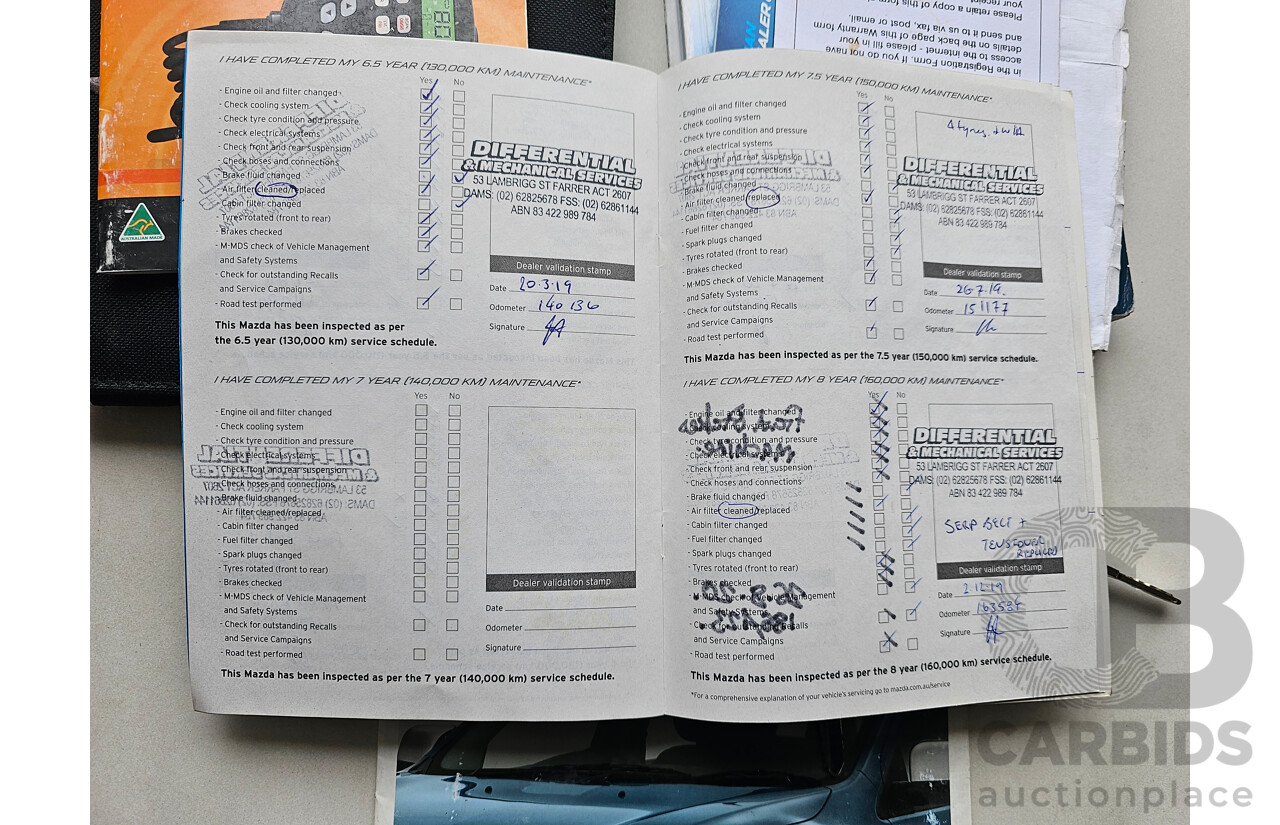 I HAVE COMPLETED MY 6.5 YEAR (130,000 KM) MAINTENANCE*
Yes No
- Engine oil and filter changed
- Check cooling system
- Check tyre condition and pressure
- Check electrical systems
- Check front and rear suspension
- Check hoses and connections
- Brake fluid changed
- Air filter cleaned/replaced
- Cabin filter changed
- Tyres rotated (front to rear)
- Brakes checked
- M-MDS check of Vehicle Management
and Safety Systems
- Check for outstanding Recalls
and Service Campaigns
- Road test performed
DIFFERENTIAL
& MECHANICAL SERVICES
53 LAMBRIGG ST FARRER ACT 2607
DAMS: (02) 62825678 FSS: (02) 62861144
ABN 83 422 989 784
Dealer validation stamp
Date 20.3.19
Odometer 140 136
Signature
This Mazda has been inspected as per
the 6.5 year (130,000 km) service schedule.
I HAVE COMPLETED MY 7 YEAR (140,000 KM) MAINTENANCE*
Yes No
- Engine oil and filter changed
- Check cooling system
- Check tyre condition and pressure
- Check electrical systems
- Check front and rear suspension
- Check hoses and connections
- Brake fluid changed
- Air filter cleaned/replaced
- Cabin filter changed
- Fuel filter changed
- Spark plugs changed
- Tyres rotated (front to rear)
- Brakes checked
- M-MDS check of Vehicle Management
and Safety Systems
- Check for outstanding Recalls
and Service Campaigns
- Road test performed
Dealer validation stamp
Date
Odometer
Signature
This Mazda has been inspected as per the 7 year (140,000 km) service schedule.
I HAVE COMPLETED MY 7.5 YEAR (150,000 KM) MAINTENANCE*
Yes No
- Engine oil and filter changed
- Check cooling system
- Check tyre condition and pressure
- Check electrical systems
- Check front and rear suspension
- Check hoses and connections
- Brake fluid changed
- Air filter cleaned/replaced
- Cabin filter changed
- Fuel filter changed
- Spark plugs changed
- Tyres rotated (front to rear)
- Brakes checked
- M-MDS check of Vehicle Management
and Safety Systems
- Check for outstanding Recalls
and Service Campaigns
- Road test performed
4 tyres, + w/A
DIFFERENTIAL
& MECHANICAL SERVICES
53 LAMBRIGG ST FARRER ACT 2607
DAMS: (02) 62825678 FSS: (02) 62861144
ABN 83 422 989 784
Dealer validation stamp
Date 26.7.19.
Odometer 151177
Signature
This Mazda has been inspected as per the 7.5 year (150,000 km) service schedule.
I HAVE COMPLETED MY 8 YEAR (160,000 KM) MAINTENANCE*
Yes No
- Engine oil and filter changed
- Check cooling system
- Check tyre condition and pressure
- Check electrical systems
- Check front and rear suspension
- Check hoses and connections
- Brake fluid changed
- Air filter cleaned/replaced
- Cabin filter changed
- Fuel filter changed
- Spark plugs changed
- Tyres rotated (front to rear)
- Brakes checked
- M-MDS check of Vehicle Management
and Safety Systems
- Check for outstanding Recalls
and Service Campaigns
- Road test performed
DIFFERENTIAL
& MECHANICAL SERVICES
53 LAMBRIGG ST FARRER ACT 2607
DAMS: (02) 62825678 FSS: (02) 62861144
ABN 83 422 989 784
SERP BELT +
TENSIONER
REPLACED
Dealer validation stamp
Date 2.12.19
Odometer 163537
Signature
This Mazda has been inspected as per the 8 year (160,000 km) service schedule.
*For a comprehensive explanation of your vehicle's servicing go to mazda.com.au/service
AUSTRALIAN MADE
in the Registration Form. If you do not have
access to the internet - please fill in your
details on the back page of this Warranty form
and send it to us via fax, post or email.
Please retain a copy of this form
CARBIDS
auctionplace